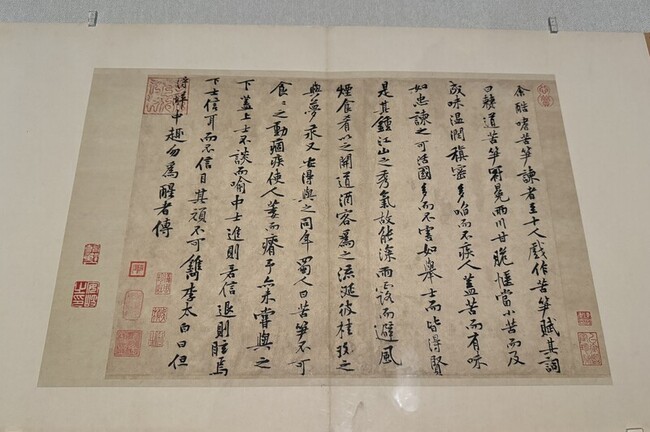 余酷嗜苦筍諫者至十人戲作苦筍賦其詞
曰僰道苦筍冠冕兩川甘脆愜當小苦而反
成味溫潤縝密多啗而不疾人蓋苦而有味
如忠諫之可活國多而不害如舉士而皆得賢
是其鍾江山之秀氣故能深雨露而避風
煙食肴以之開道酒客為之流涎彼桂玫之
與夢永又安得與之同年蜀人曰苦筍不可
食〻之動痼疾使人萎而瘠予亦未嘗與之
下蓋上士不談而喻中士進則若信退則眩焉
下士信耳而不信目其頑不可鐫李太白曰但
得醉中趣勿為醒者傳